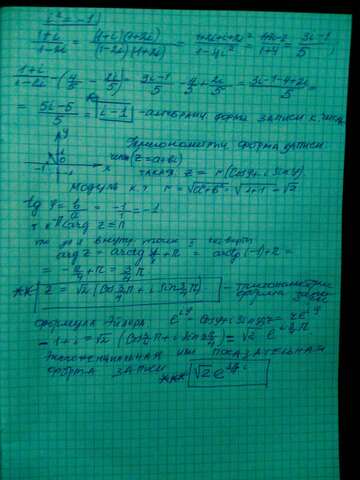 i² = -1
(1+i)/(1-2i) = (1+i)(1+2i)/((1-2i)(1+2i)) = (1+2i+i+2i²)/(1-4i²) = /(1+4) = (3i-1)/5
(1+i)/(1-2i) - (4/5 - 2i/5) = (3i-1)/5 - 4/5 + 2i/5 = (3i-1-4+2i)/5 =
= (5i-5)/5 = i-1 - форма записи к. числа
y
Тригонометрич. форма записи
числа (z=a+bi)
x z = r(cosφ+i sinφ)
модуль к.ч r = √(a²+b²) = √(1+1) = √2
tg φ = b/a = -1/1 = -1
arg z = π
т. внутр. точка II четверти
arg z = arctg + π = arctg(-1) + π =
= -π/4 + π = 3/4 π
** z = √2 (cos 3/4 π + i sin 3/4 π) - тригонометрич. форма записи
Формула Эйлера e^(iφ) = cosφ + i sinφ z = re^(iφ)
-1+i = √2 (cos 3/4 π + i sin 3/4 π) = √2 e^(i 3/4 π)
Экспоненциальная или показательная
форма записи *** √2·e^(3π/4 i)